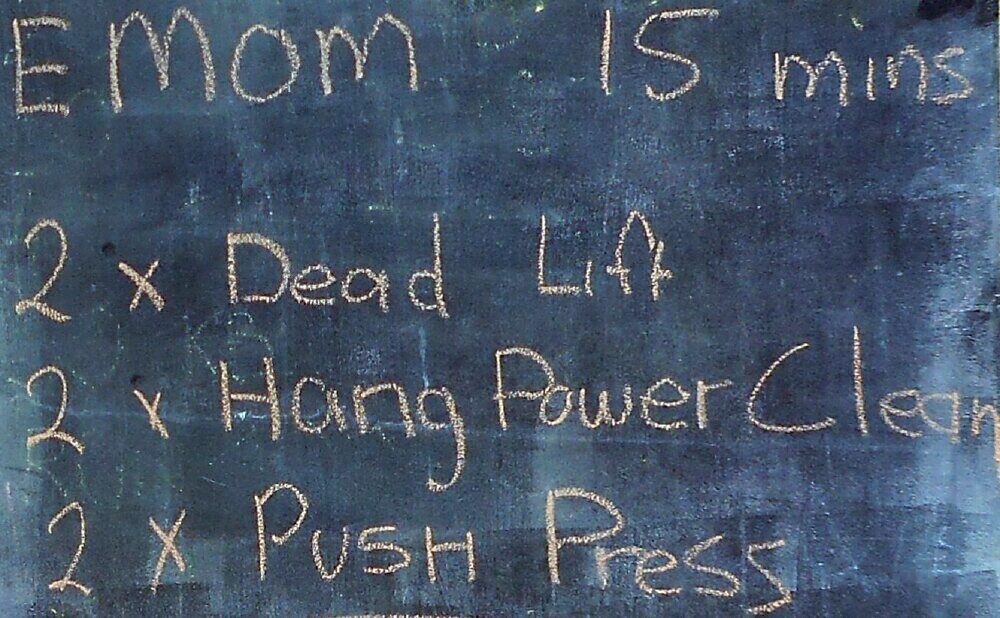 EMOM 15 mins
2 x Dead Lift
2 x Hang Power Clean
2 x PUSH Press